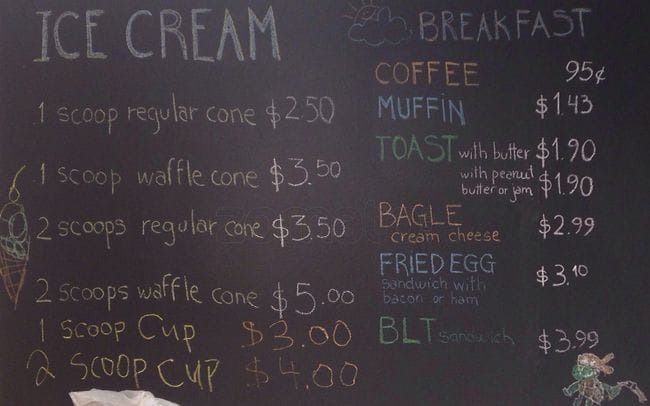 ICE CREAM
1 scoop regular cone $2.50
1 scoop waffle cone $3.50
2 scoops regular cone $3.50
2 scoops waffle cone $5.00
1 Scoop Cup $3.00
2 Scoop CUP $4.00
BREAKFAST
COFFEE 95¢
MUFFIN $1.43
TOAST with butter $1.90
with peanut
butter or jam $1.90
BAGLE $2.99
cream cheese
FRIED EGG $3.10
sandwich with
bacon or ham
BLT sandwich $3.99